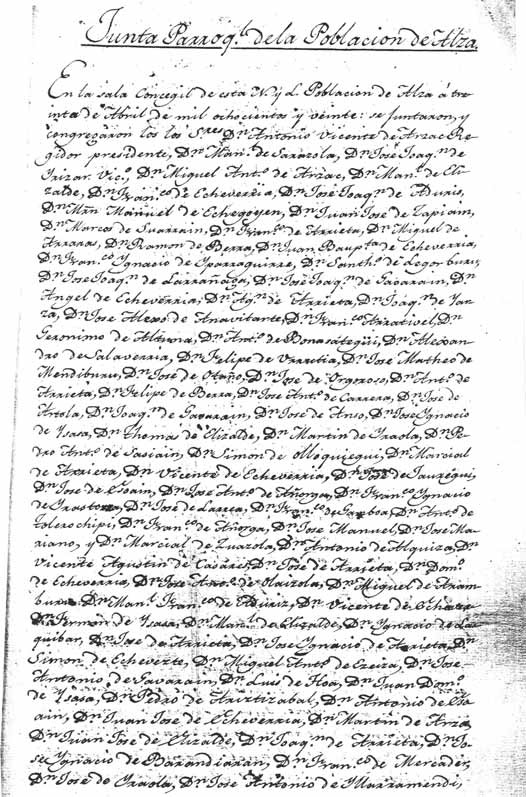 Junta Parroq.l de la Poblacion de Alza.
En la sala Concegil de esta N. y L. Poblacion de Alza á tre
inta de Abril de mil ochocientos y veinte: se juntaron, y
congregaron los Sres Dn. Antonio Vicente de Arzac Re-
gidor presidente, Dn. Man.l de Sarazola, Dn. Jose Joaq.n de
Irizar Vic.o, Dn. Miguel Ant.o de Arzac, Dn. Man.l de Eli-
zalde, Dn. Fran.co de Echeverria, Dn. Jose Joaq.n de Aduriz,
Dn. Mrn. Manuel de Echegoyen, Dn. Juan Jose de Zapiain,
Dn. Marcos de Juarrain, Dn. Fran.co de Arrieta, Dn. Miguel de
Arranas, Dn. Ramon de Berra, Dn. Juan Baup.ta de Echeverria,
Dn. Fran.co Ignacio de Yparraguirre, Dn. Santh.o de Legorburu,
Dn. Jose Joaq.n de Larrañaga, Dn. Jose Joaq.n de Gavarain, Dn.
Angel de Echeverria, Dn. Ag.n de Arrieta, Dn. Joaq.n de Yan-
za, Dn. Jose Alexo de Anavitarte, Dn. Fran.co Dn.
Geronimo de Aldava, Dn. Ant.o de Bonasategui, Dn. Alexan-
dro de Salaverria, Dn. Felipe de Urretia, Dn. Jose Matheo de
Mendiburu, Dn. Jose de Otaño, Dn. Jose de Orgoroso, Dn. Ant.o de
Arrieta, Dn. Felipe de Berra, Dn. Jose Ant.o de Carrera, Dn. Jose de
Artola, Dn. Joaq.n de Gavarain, Dn. Jose de Anso, Dn. Jose Ygnacio
de Ysasa, Dn. Thomas de Elizalde, Dn. Martin de Yraola, Dn. Pe-
dro Ant.o de Sasiain, Dn. Simon de Olloquiegui, Dn. Marcial
de Arrieta, Dn. Vicente de Echeverria, Dn. Jose de Jauregui,
Dn. Jose de Egoain, Dn. Jose Ant.o de Añorga, Dn. Fran.co Ygnacio
de Yrastorza, Dn. Jose de Larrea, Dn. Fran.co de Gamboa, Dn. Ant.o de
Zolerochipi, Dn. Fran.co de Añorga, Dn. Jose Manuel, Dn. Jose Ma-
riano, y Dn. Marcial de Zuazola, Dn. Antonio de Alquiza, Dn.
Vicente Agustin de Casares, Dn. Jose de Arrieta, Dn. Dom.o
de Echeverria, Dn. Jose Ant.o de Olaizola, Dn. Miguel de Aram-
buru, Dn. Man.l Fran.co de Aduriz, Dn. Vicente de
Dn. Ramon de Ysasa, Dn. Man.l de Elizalde, Dn. Ygnacio de La-
quibar, Dn. Jose de Arrieta, Dn. Jose Ygnacio de Arrieta, Dn.
Simon de Echeverte, Dn. Miguel Ant.o de Ezeiza, Dn. Jose
Antonio de Gavarain, Dn. Luis de Hoa, Dn. Juan Dom.o
de Ysasa, Dn. Pedro de Ariztizabal, Dn. Antonio de Eso-
ain, Dn. Juan Jose de Echeverria, Dn. Martin de Arza,
Dn. Juan Jose de Elizalde, Dn. Joaq.n de Arrieta, Dn. Jo-
se Ygnacio de Barandiaran, Dn. Fran.co de Mercader,
Dn. Jose de Yraola, Dn. Jose Antonio de Marramendi,